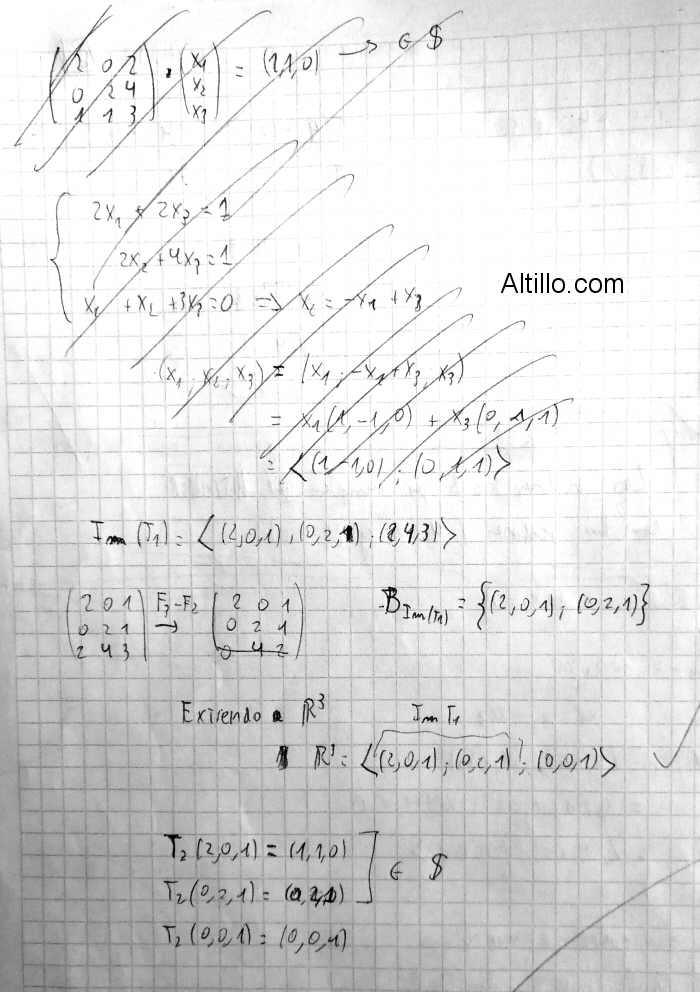 ( 2 0 2 ) · ( x₁ ) = (1,1,0) → ∈ $
( 0 2 4 ) ( x₂ )
( 1 1 3 ) ( x₃ )
{ 2x₁ + 2x₃ = 1
2x₂ + 4x₃ = 1
x₁ + x₂ + 3x₃ = 0 ⇒ x₂ = -x₁ + x₃
Altillo.com
(x₁; x₂; x₃) = (x₁; -x₁+x₃, x₃)
= x₁(1,-1,0) + x₃(0,1,1)
= <(1-1,0); (0,1,1)>
Im(T₁) = <(2,0,1), (0,2,1); (2,4,3)>
( 2 0 1 ) F₃-F₂ ( 2 0 1 ) B Im(T₁) = {(2,0,1); (0,2,1)}
( 0 2 1 ) → ( 0 2 1 )
( 2 4 3 ) ( 0 4 2 )
Extiendo a ℝ³ Im T₁
ℝ³ = <(2,0,1); (0,2,1); (0,0,1)>
T₂(2,0,1) = (1,1,0)
T₂(0,2,1) = ] ∈ $
T₂(0,0,1) = (0,0,1)